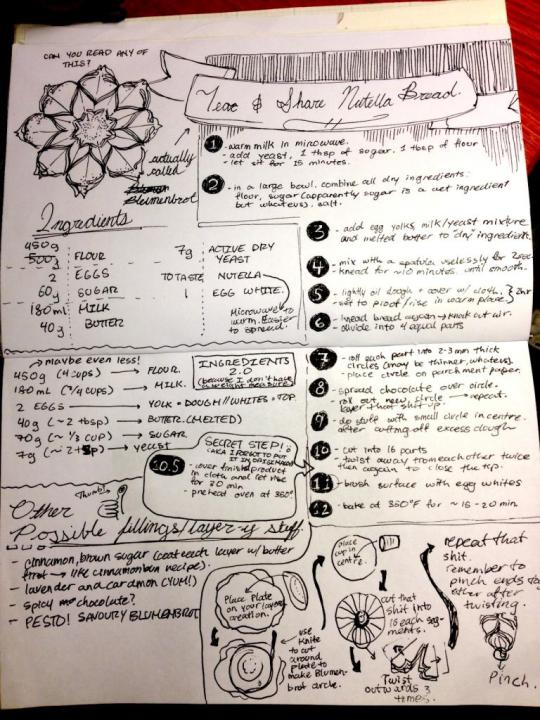 CAN YOU READ ANY OF
THIS?
Tear & Share Nutella Bread.
actually
called
Blumenbrot
1 - warm milk in microwave.
- add yeast, 1 tbsp of sugar, 1 tbsp of flour
- let sit for 15 minutes.
2 - in a large bowl, combine all dry ingredients:
flour, sugar (apparently sugar is a wet ingredient
but whatevs), salt.
Ingredients
450g
500g FLOUR
2 EGGS
60g SUGAR
180ml MILK
40g BUTTER
7g ACTIVE DRY
YEAST
TO TASTE NUTELLA
1 EGG WHITE.
Microwave to
warm. Easier
to spread.
3 - add egg yolks, milk/yeast mixture
and melted butter to "dry" ingredients.
4 - mix with a spatula uselessly for 2sec
- knead for ~10 minutes. until smooth.
5 - lightly oil dough + cover w/ cloth.
- set to proof/rise in warm place. } 2hr
6 - knead bread again → knock out air.
- divide into 4 equal parts
→ maybe even less!
450g (4 cups) → FLOUR.
180ml (3/4 cups) → MILK.
2 EGGS → YOLK = DOUGH//WHITES = TOP.
40g (~2 tbsp) → BUTTER. (MELTED)
70g (~1/3 cup) → SUGAR
7g (~2 tsp) → YEAST
INGREDIENTS
2.0
(because I don't have
a weight measure)
SECRET STEP!
(AKA I FORGOT TO PUT
IT IN
10.5 - cover finished product
in cloth and let rise
for 20 min
- preheat oven at 350°
7 - roll each part into 2-3mm thick
circles (may be thinner, whatevs).
- place circle on parchment paper.
8 - spread chocolate over circle.
- roll out new circle → repeat.
layer that shit up.
9 - do stuff with small circle in centre.
after cutting off excess dough
10 - cut into 16 parts
- twist away from each other twice
then again to close the tip.
11 - brush surface with egg whites
12 - bake at 350°F for ~15-20 min.
Thumb!
Other
Possible fillings/layer-y stuff.
- cinnamon, brown sugar (coat each layer w/ butter
first → like cinnamon bun recipe).
- lavender and cardmon (YUM!)
- spicy chocolate?
- PESTO! SAVOURY BLUMENBROT
Place Plate
on your layered
creation.
use
knife
to cut
around
plate to
make Blumen-
brot circle.
place
cup in
centre.
cut that
shit into
16 each seg-
ments.
Twist
outwards 3
times.
repeat that
shit.
remember to
pinch ends to
other after
twisting.
Pinch.